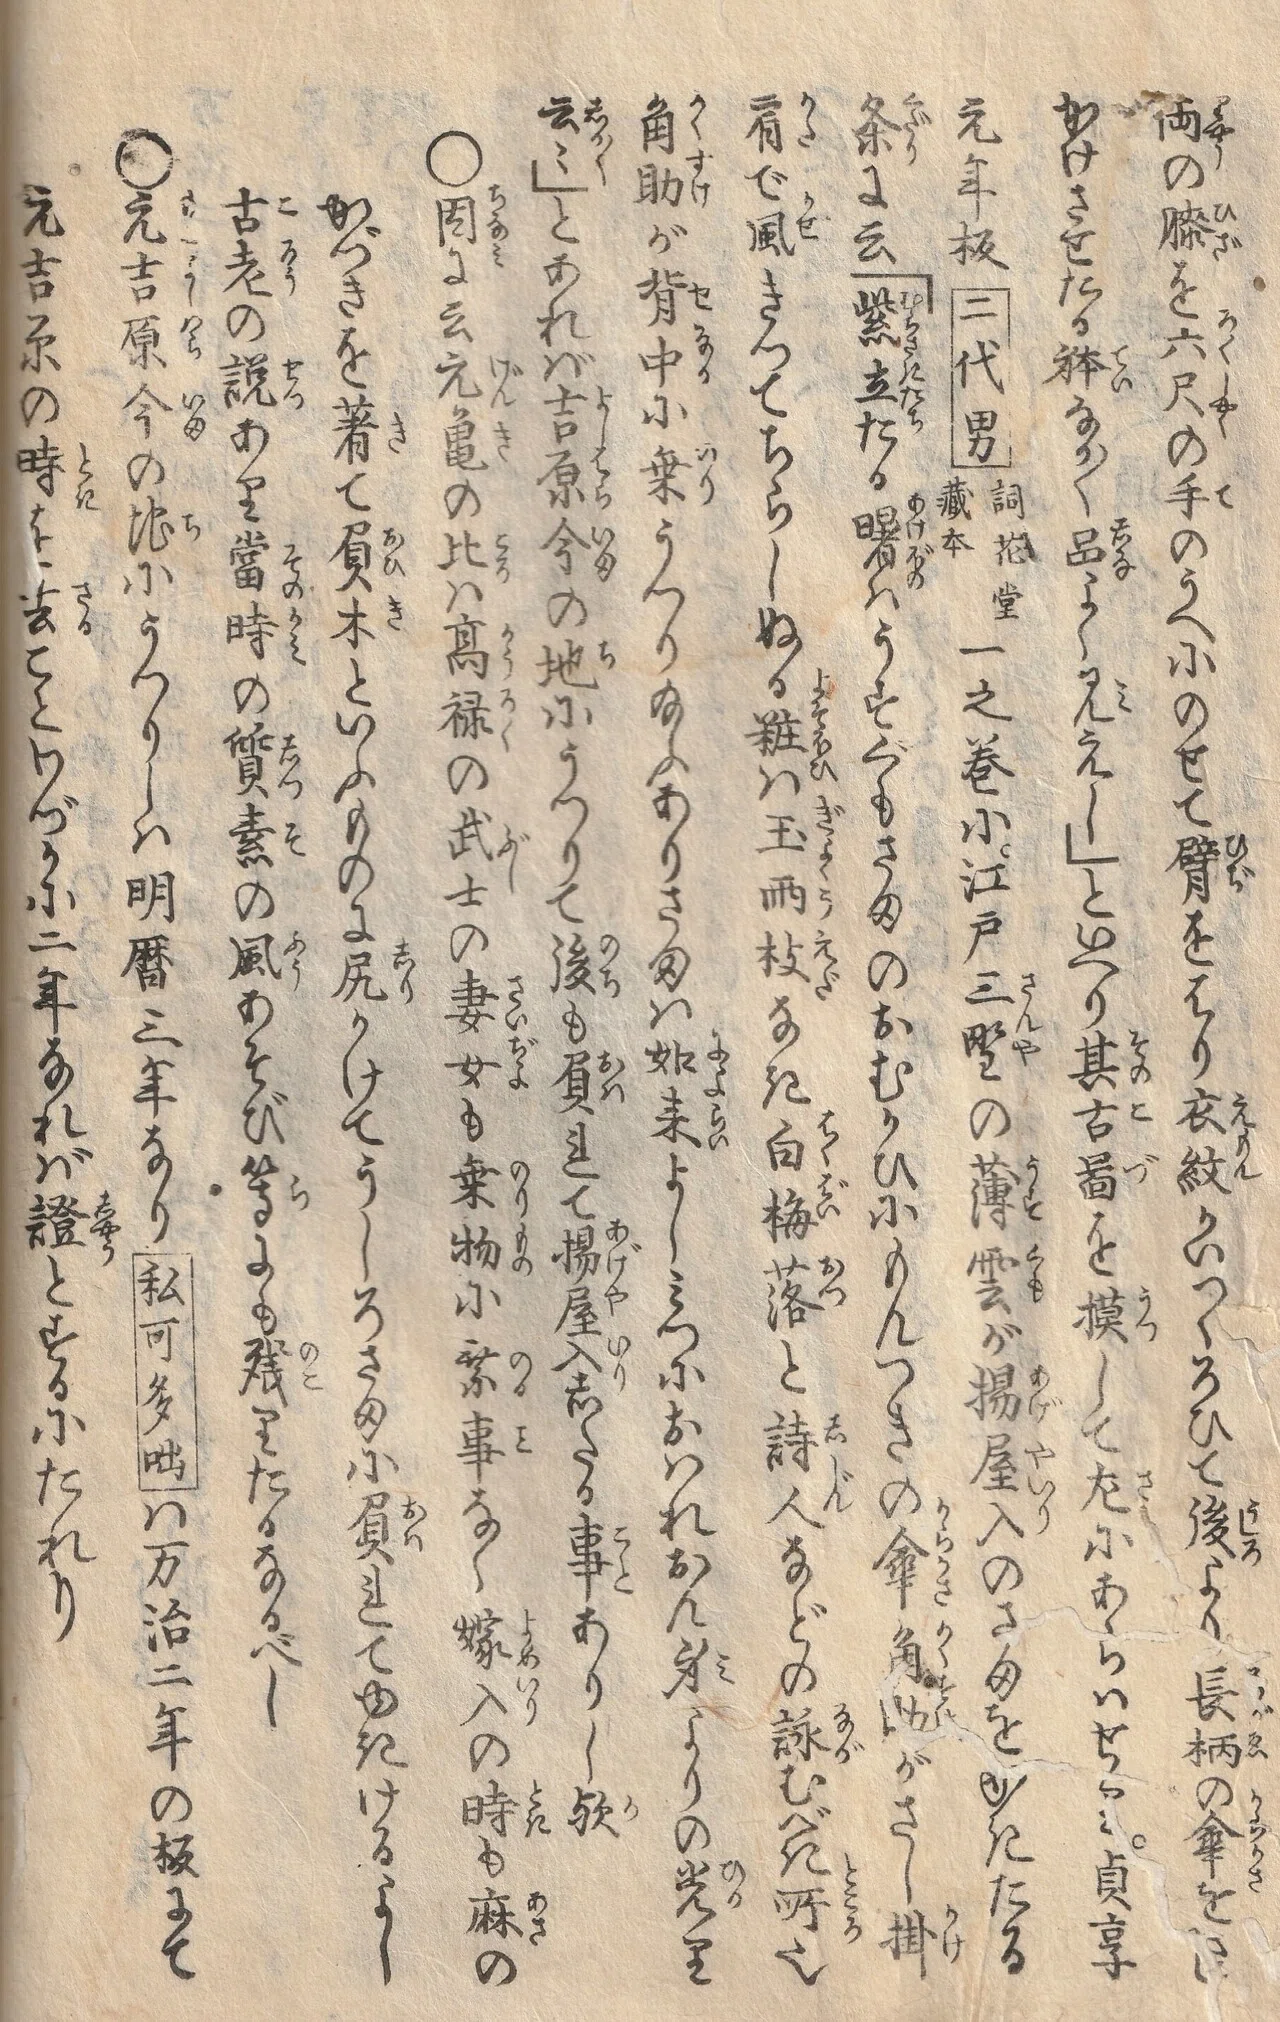 両の膝を六尺の手のうへにのせて臂をはり衣紋かいつくろひて後より長柄の傘を
かけさせたる体ながく品よく見えし」といへり其古図を摸して左にあらはせり。貞享
元年板 二代男 詞花堂蔵本 一之巻に。江戸三野の薄雲が揚屋入のさまをかきたる
条に云「紫立たる曙はうすぐもさまのおむかひにもんつきの傘角助がさし掛
肩で風きつてちらしぬる粧は玉雨枝なき白梅落と詩人などの詠むべき所也
角助が背中に乗うつり給ふありさまは如来よしミつにおはれおん身よりの光り
云々」とあれば吉原今の地にうつりて後も負れて揚屋入したる事ありし歟
○因に云元亀の比は高禄の武士の妻女も乗物に乗事なく嫁入の時も麻の
かづきを着て負木といふものに尻かけてうしろさまに負れてゆきけるよし
古老の説あり当時の質素の風あそび等にも残りたるなるべし
○元吉原今の地にうつりしは明暦三年なり 私可多咄 は万治二年の板にて
元吉原の時を去ことわづかに二年なれば證とするにたれり